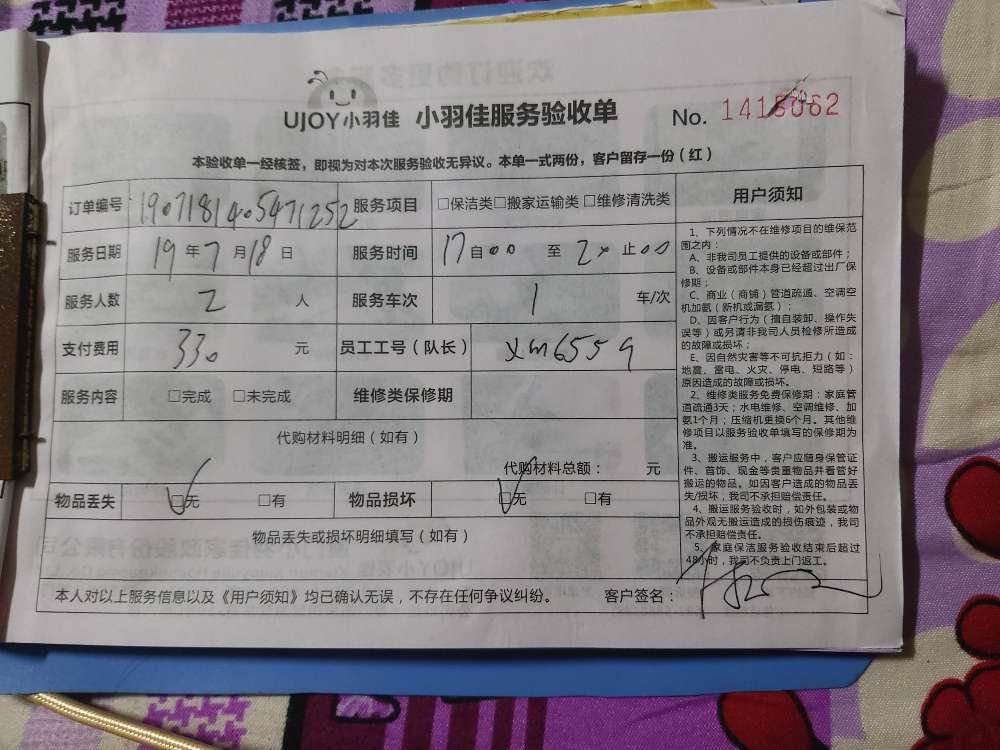 UJOY小羽佳 小羽佳服务验收单 No.
本验收单一经核签，即视为对本次服务验收无异议。本单一式两份，客户留存一份（红）
订单编号 1907181405471252 服务项目 □保洁类□搬家运输类□维修清洗类
服务日期 19年7月18日 服务时间 17自00 至 2× 止00
服务人数 2 人 服务车次 1 车/次
支付费用 330 元 员工工号（队长） XM6559
服务内容 □完成 □未完成 维修类保修期
代购材料明细（如有）
代购材料总额： 元
物品丢失 ☑无 □有 物品损坏 ☑无 □有
物品丢失或损坏明细填写（如有）
本人对以上服务信息以及《用户须知》均已确认无误，不存在任何争议纠纷。 客户签名：
用户须知
1、下列情况不在维修项目的维保范
围之内：
A、非我司员工提供的设备或部件；
B、设备或部件本身已经超过出厂保
修期；
C、商业（商铺）管道疏通、空调空
机加氨（新机或漏氨）
D、因客户行为（擅自装卸、操作失
误等）或另请非我司人员检修所造成
的故障或损坏；
E、因自然灾害等不可抗拒力（如：
地震、雷电、火灾、停电、短路等）
原因造成的故障或损坏。
2、维修类服务免费保修期：家庭管
道疏通3天；水电维修、空调维修、加
氨1个月；压缩机更换6个月。其他维
修项目以服务验收单填写的保修期为
准。
3、搬运服务中，客户应随身保管证
件、首饰、现金等贵重物品并看管好
搬运的物品。如因客户造成的物品丢
失/损坏，我司不承担赔偿责任。
4、搬运服务验收时，如外包装或物
品外观无搬运造成的损伤痕迹，我司
不承担赔偿责任。
5、家庭保洁服务验收结束后超过
48小时，我司不负责上门返工。